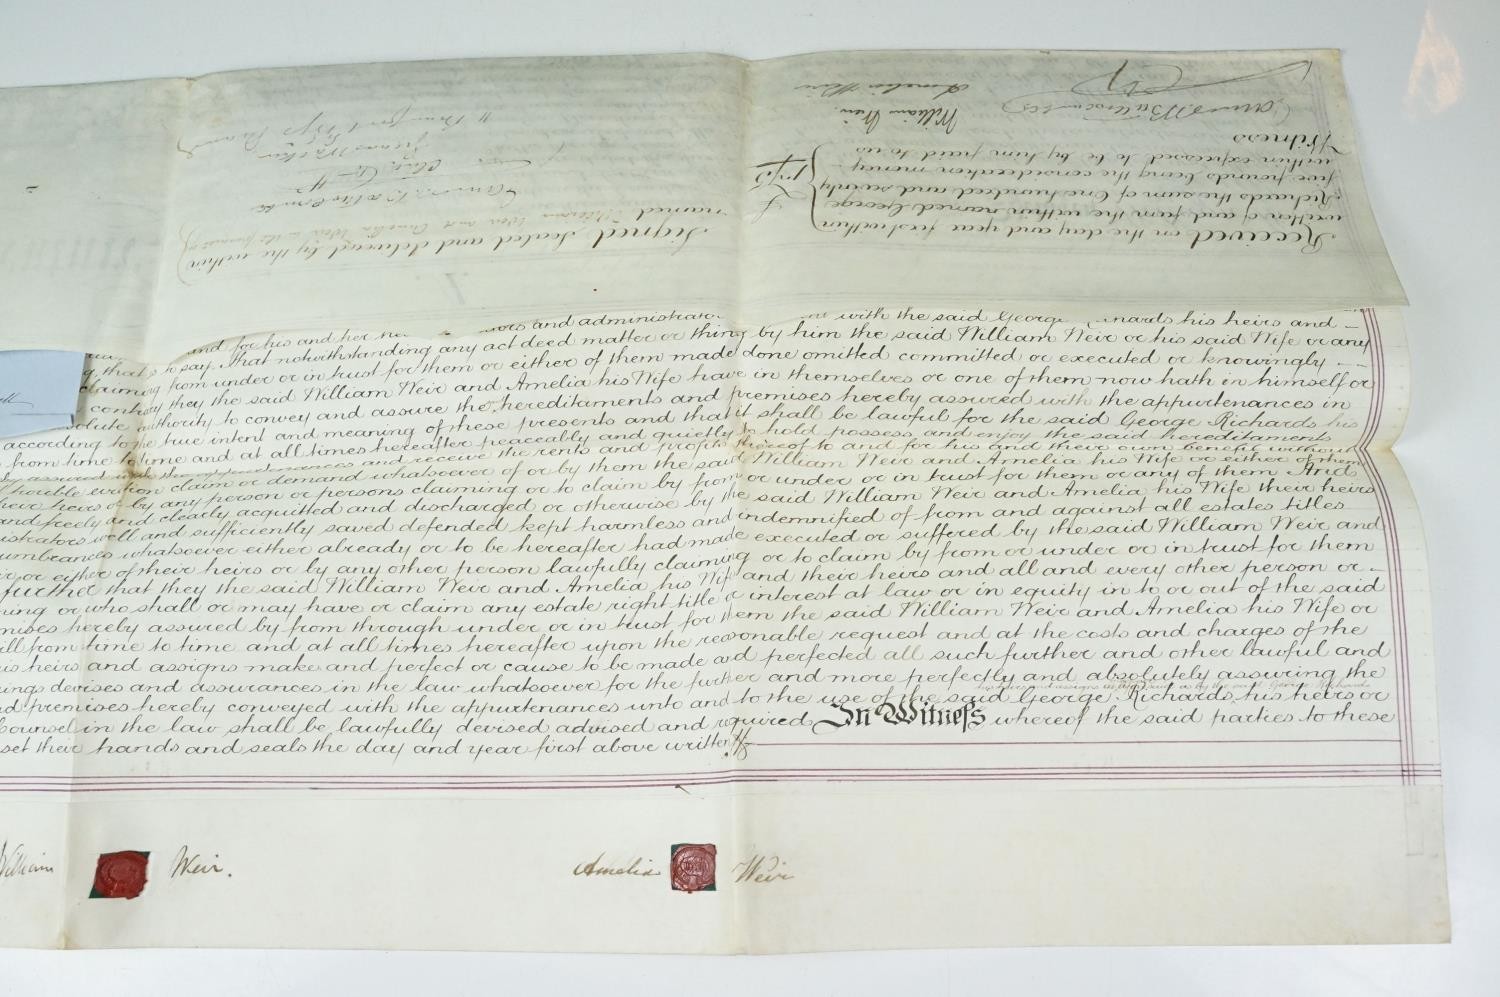 Received on the day and year first within
written of and from the within named George
Richards the sum of One hundred and seventy
five pounds being the consideration money
within expressed to be by him paid to us
£
175
Witness
William Weir
Amelia Weir
Signed Sealed and delivered by the within
named William Weir and Amelia Weir in the presence of
and for his and her and administrators with the said George Richards his heirs and
to say That notwithstanding any act deed matter or thing by him the said William Weir or his said Wife or any
claiming from under or in trust for them or either of them made done omitted committed or executed or knowingly
they the said William Weir and Amelia his Wife have in themselves or one of them now hath in himself or
absolute authority to convey and assure the hereditaments and premises hereby assured with the appurtenances in
according to the true intent and meaning of these presents and that it shall be lawful for the said George Richards his
from time to time and at all times hereafter peaceably and quietly to hold possess and enjoy the said hereditaments
assured with the appurtenances and receive the rents and profits thereof to and for his and their own benefit without
eviction claim or demand whatsoever of or by them the said William Weir and Amelia his Wife or either of them
their heirs or by any person or persons claiming or to claim by from or under or in trust for them or any of them And
and freely and clearly acquitted and discharged or otherwise by the said William Weir and Amelia his Wife their heirs
well and sufficiently saved defended kept harmless and indemnified of from and against all estates titles
whatsoever either already or to be hereafter had made executed or suffered by the said William Weir and
or either of their heirs or by any other person lawfully claiming or to claim by from or under or in trust for them
further that they the said William Weir and Amelia his Wife and their heirs and all and every other person or
or who shall or may have or claim any estate right title or interest at law or in equity in to or out of the said
hereby assured by from through under or in trust for them the said William Weir and Amelia his Wife or
from time to time and at all times hereafter upon the reasonable request and at the costs and charges of the
his heirs and assigns make and perfect or cause to be made and perfected all such further and other lawful and
devises and assurances in the law whatsoever for the further and more perfectly and absolutely assuring the
premises hereby conveyed with the appurtenances unto and to the use of the said George Richards his heirs or
Counsel in the law shall be lawfully devised advised and required In Witness whereof the said parties to these
set their hands and seals the day and year first above written
William Weir. Amelia Weir